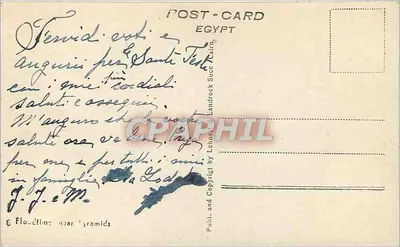 POST-CARD
EGYPT
Fervidi voti e
augurii per le Sante Feste
con i miei più cordiali
saluti e ossequi.
M'auguro che la vostra
salute ora va bene.
per me e per tutti i miei
in famiglia. Sia Lodato
J. J. e M.
CPAPHIL
Publ. and Copyright by Lehnert & Landrock Succ. Cairo
6 Floodtime near Pyramids